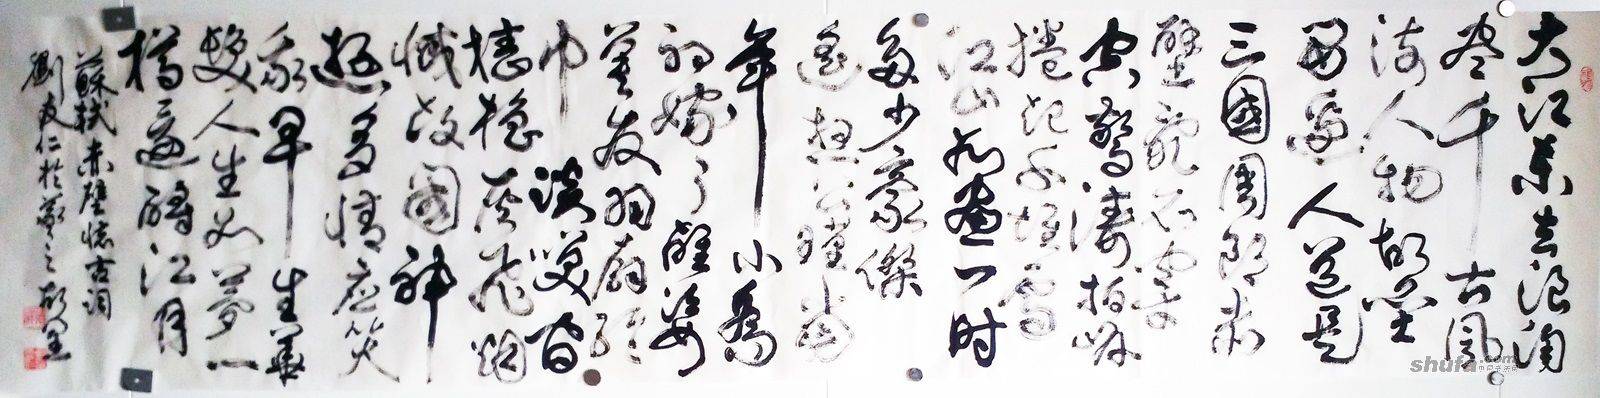 大江东去浪淘
尽千古风
流人物故垒
西边人道是
三國周郎赤
壁乱石穿
空驚濤拍岸
捲起千堆雪
江山如畫一时
多少豪傑
遥想公瑾当
年小喬
初嫁了雄姿
英发羽扇纶
巾谈笑间
樯橹灰飞烟
滅故國神
遊多情应笑
我早生華
髮人生如夢一
樽還酹江月
蘇轼赤壁懷古词
劉友仁於
shufa.com